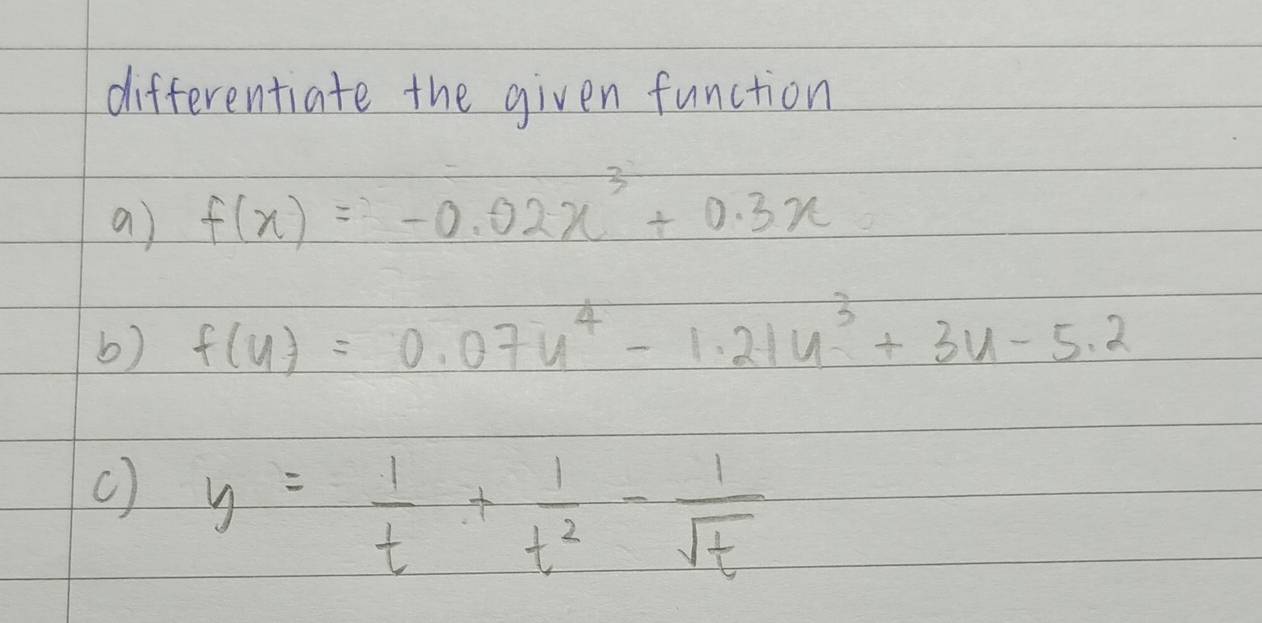 differentiate the given function
a) f(x) = -0.02x³ + 0.3x
b) f(u) = 0.07u⁴ - 1.21u³ + 3u - 5.2
c) y = 1/t + 1/t² - 1/√t